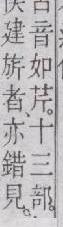 建旂者
古音如芹。十三部。
亦錯見。